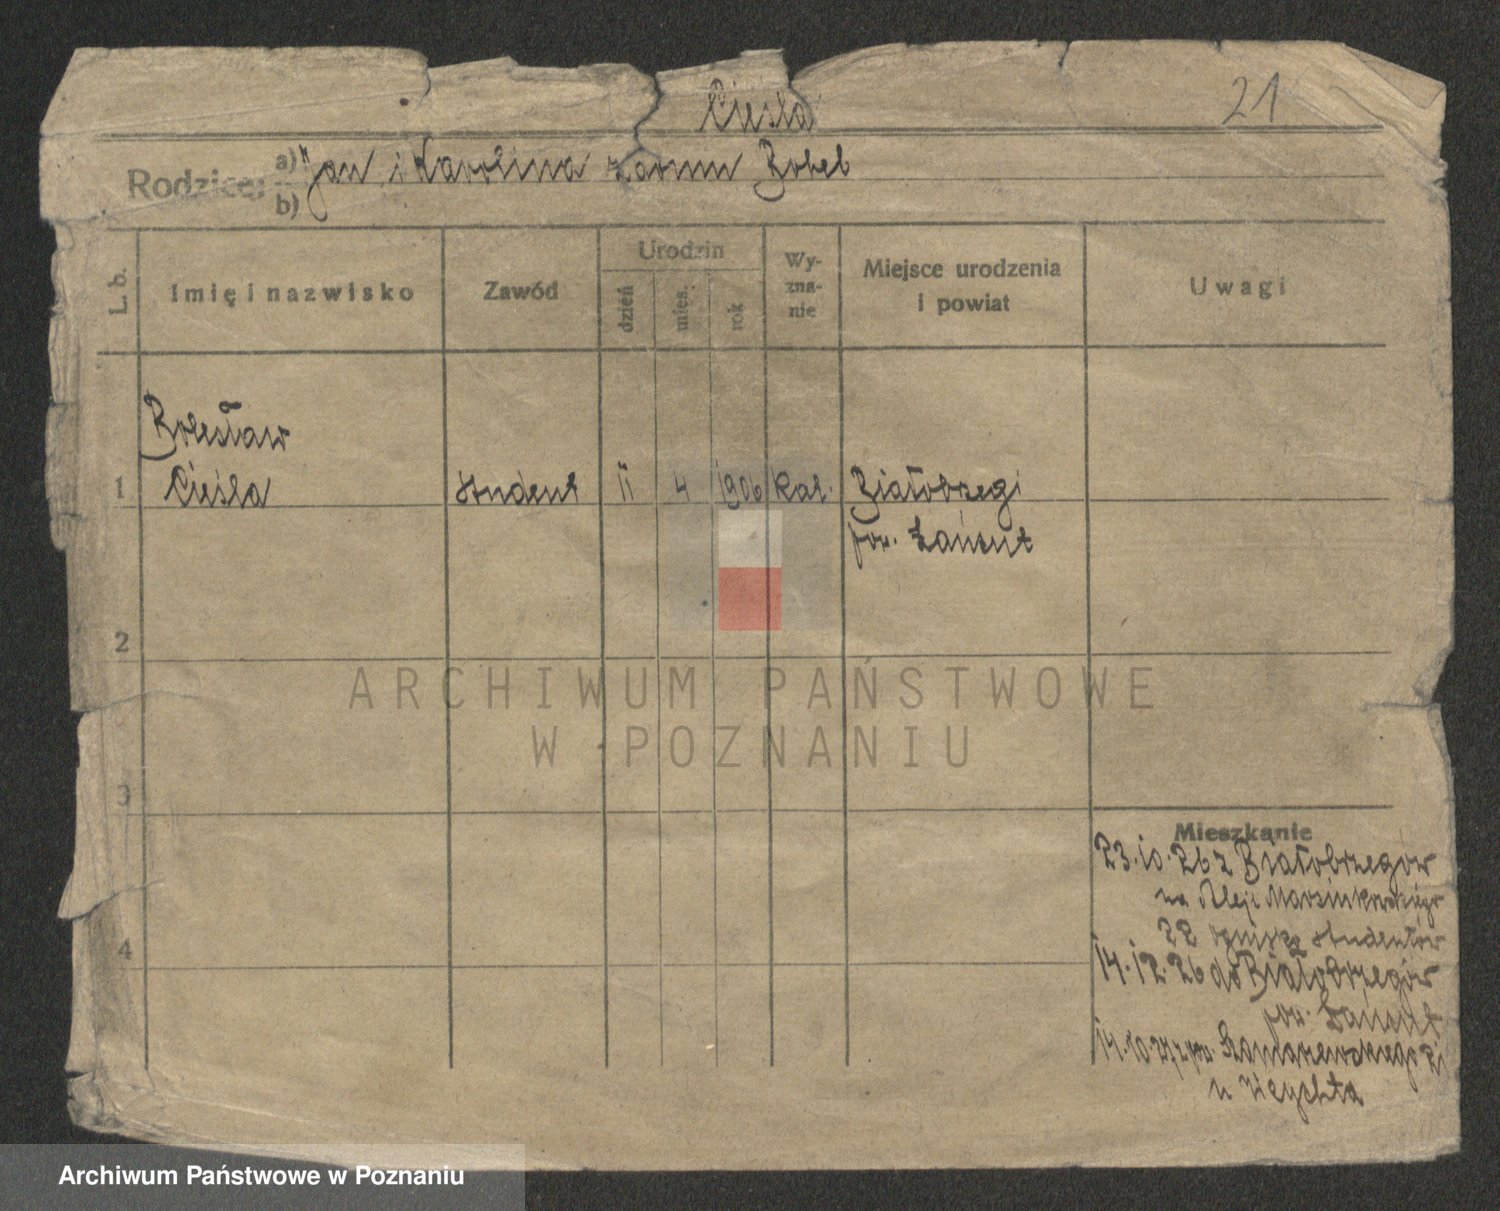 Cieśla
21
Rodzice: a) Jan i Karolina z domu
b)
L. b.
Imię i nazwisko
Zawód
Urodzin
dzień
mies.
rok
Wy-
zna-
nie
Miejsce urodzenia
i powiat
Uwagi
Bolesław
1
Cieśla
student
11
4
1906
kat.
Białobrzegi
pow. Łańcut
2
3
4
Mieszkanie
23.10.26 z Białobrzegów
na Aleje Marcinkowskiego
22 studentów
14.12.26 do Białobrzegów
pow. Łańcut
14.10.27 z pow.
u
ARCHIWUM PAŃSTWOWE
W POZNANIU
Archiwum Państwowe w Poznaniu